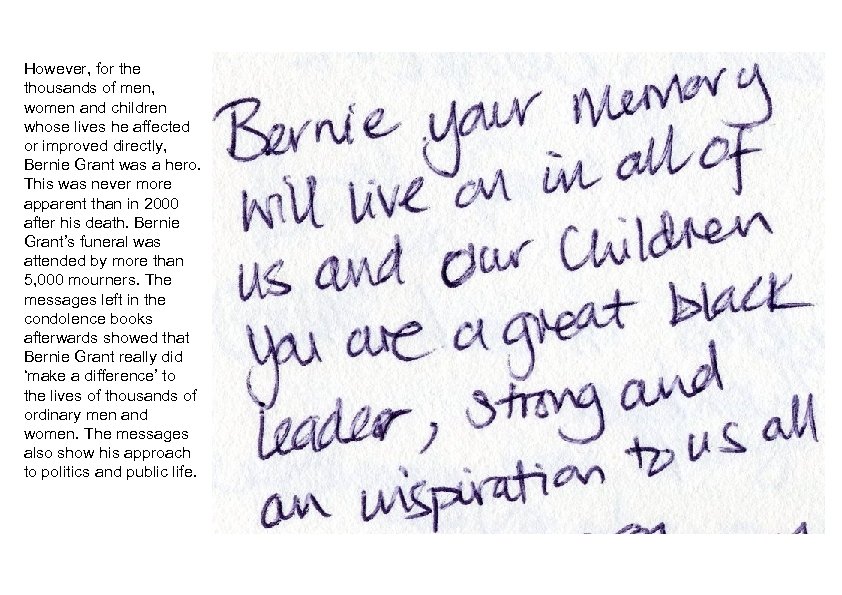 However, for the
thousands of men,
women and children
whose lives he affected
or improved directly,
Bernie Grant was a hero.
This was never more
apparent than in 2000
after his death. Bernie
Grant’s funeral was
attended by more than
5,000 mourners. The
messages left in the
condolence books
afterwards showed that
Bernie Grant really did
‘make a difference’ to
the lives of thousands of
ordinary men and
women. The messages
also show his approach
to politics and public life.
Bernie your memory
will live on in all of
us and our Children
You are a great black
leader, strong and
an inspiration to us all